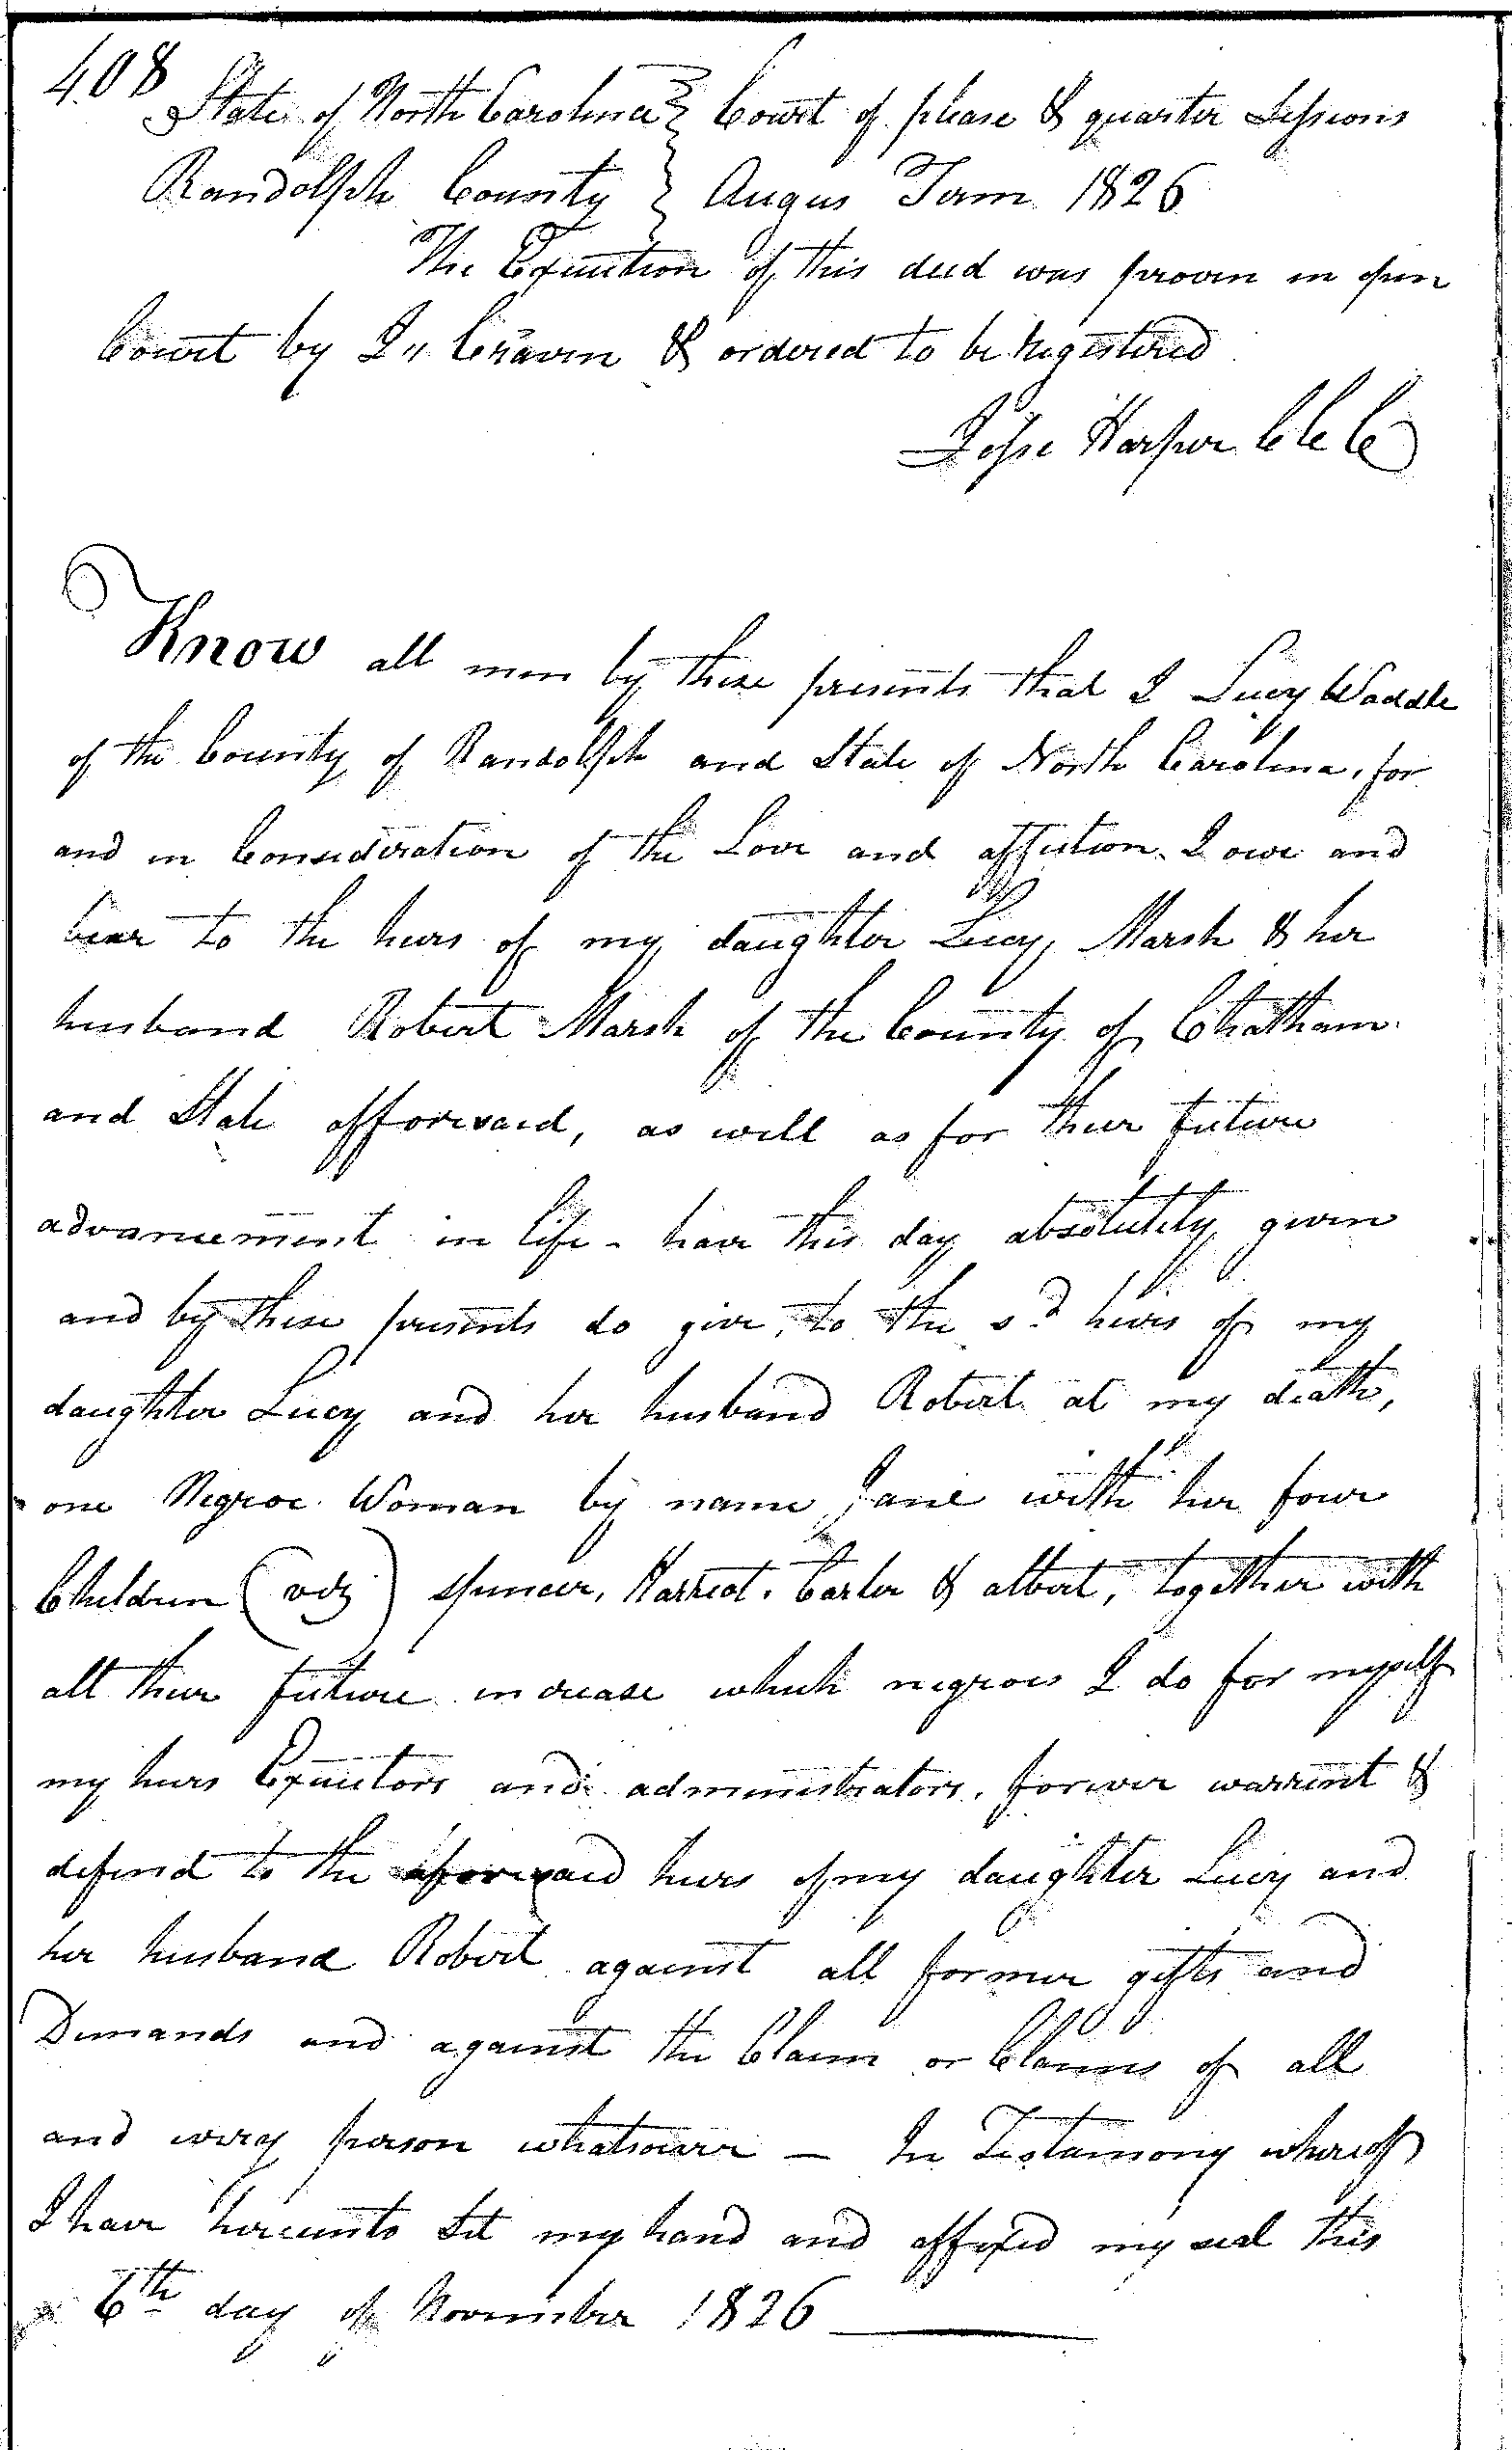 408
State of North Carolina } Court of please & quarter Sessions
Randolph County } Augus Term 1826
The Execution of this deed was proven in open
Court by I,, Craven & ordered to be Registered
Jesse Harper C C C
Know all men by these presents that I Lucy Waddle
of the County of Randolph and State of North Carolina, for
and in Consideration of the Love and affection I owe and
bear to the heirs of my daughter Lucy Marsh & her
husband Robert Marsh of the County of Chatham
and State afforesaid, as well as for their future
advancement in life - have this day absolutely given
and by these presents do give, to the sd heirs of my
daughter Lucy and her husband Robert at my death,
one Negroe Woman by name Jane with her four
Children (viz) Spencer, Harriot, Carter & albert, together with
all their future increase which negroes I do for myself
my heirs Executors and administrators, forever warrent &
defend to the aforesaid heirs of my daughter Lucy and
her husband Robert against all former gifts and
Demands and against the Claim or Claims of all
and every person whatsoever — In Testamony whereof
I have hereunto Set my hand and affixed my seal this
6th day of November 1826